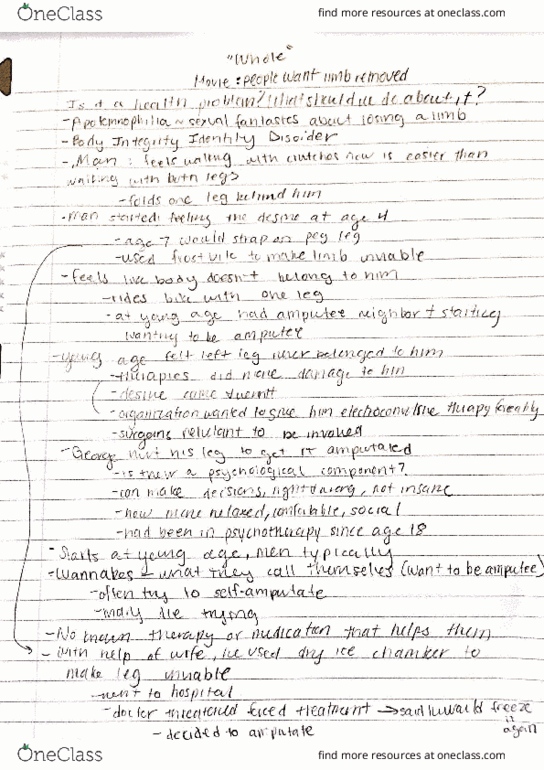 OneClass
find more resources at oneclass.com
"Whole"
Movie: people want limb removed
Is it a health problem? What should we do about it?
-Apotemnophilia ~ sexual fantasies about losing a limb
-Body Integrity Identity Disorder
-Man: feels walking with crutches now is easier than
walking with both legs
-folds one leg behind him
-man started feeling the desire at age 4
-age 7 would strap on peg leg
-used frostbite to make limb unviable
-feels like body doesn't belong to him
-rides bike with one leg
-at young age had amputee neighbor + starting
wanting to be amputee
-young age felt left leg never belonged to him
-therapies did more damage to him
-desire came
-organization wanted to give him electroconvulsive therapy forcibly
-surgeons reluctant to be involved
-George his leg to get it amputated
-is there a psychological component?
-can make decisions, right + wrong, not insane
-now more relaxed, comfortable, social
-had been in psychotherapy since age 18
-Starts at young age, men typically
-Wannabes - what they call themselves (want to be amputee)
-often try to self-amputate
-many die trying
-No known therapy or medication that helps them
-with help of wife, he used dry ice chamber to
make leg unviable
-went to hospital
-doctor threatened forced treatment → said he would freeze
it
again
-decided to amputate
OneClass
find more resources at oneclass.com